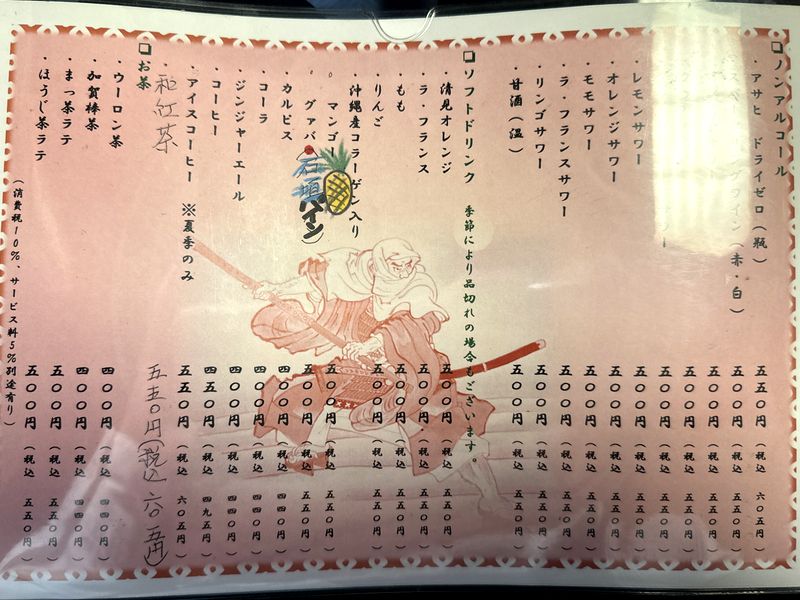 ❑ノンアルコール
・アサヒ ドライゼロ(瓶) 五五〇円(税込 六〇五円)
ワイン(赤・白) 五〇〇円(税込 五五〇円)
五〇〇円(税込 五五〇円)
五〇〇円(税込 五五〇円)
五〇〇円(税込 五五〇円)
・レモンサワー 五〇〇円(税込 五五〇円)
・オレンジサワー 五〇〇円(税込 五五〇円)
・モモサワー 五〇〇円(税込 五五〇円)
・ラ・フランスサワー 五〇〇円(税込 五五〇円)
・リンゴサワー 五〇〇円(税込 五五〇円)
・甘酒(温) 五〇〇円(税込 五五〇円)
❑ソフトドリンク 季節により品切れの場合もございます。
・清見オレンジ 五〇〇円(税込 五五〇円)
・ラ・フランス 五〇〇円(税込 五五〇円)
・もも 五〇〇円(税込 五五〇円)
・りんご 五〇〇円(税込 五五〇円)
・沖縄産コラーゲン入り
マンゴー 五〇〇円(税込 五五〇円)
グァバ 石垣パイン) 五〇〇円(税込 五五〇円)
・カルピス 四〇〇円(税込 四四〇円)
・コーラ 四〇〇円(税込 四四〇円)
・ジンジャーエール 四〇〇円(税込 四四〇円)
・コーヒー 四五〇円(税込 四九五円)
・アイスコーヒー ※夏季のみ 五五〇円(税込 六〇五円)
・和紅茶 五五〇円(税込 六〇五円)
❑お茶
・ウーロン茶 四〇〇円(税込 四四〇円)
・加賀棒茶 四〇〇円(税込 四四〇円)
・まっ茶ラテ 五〇〇円(税込 五五〇円)
・ほうじ茶ラテ 五〇〇円(税込 五五〇円)
(消費税10%、サービス料5%別途有り)